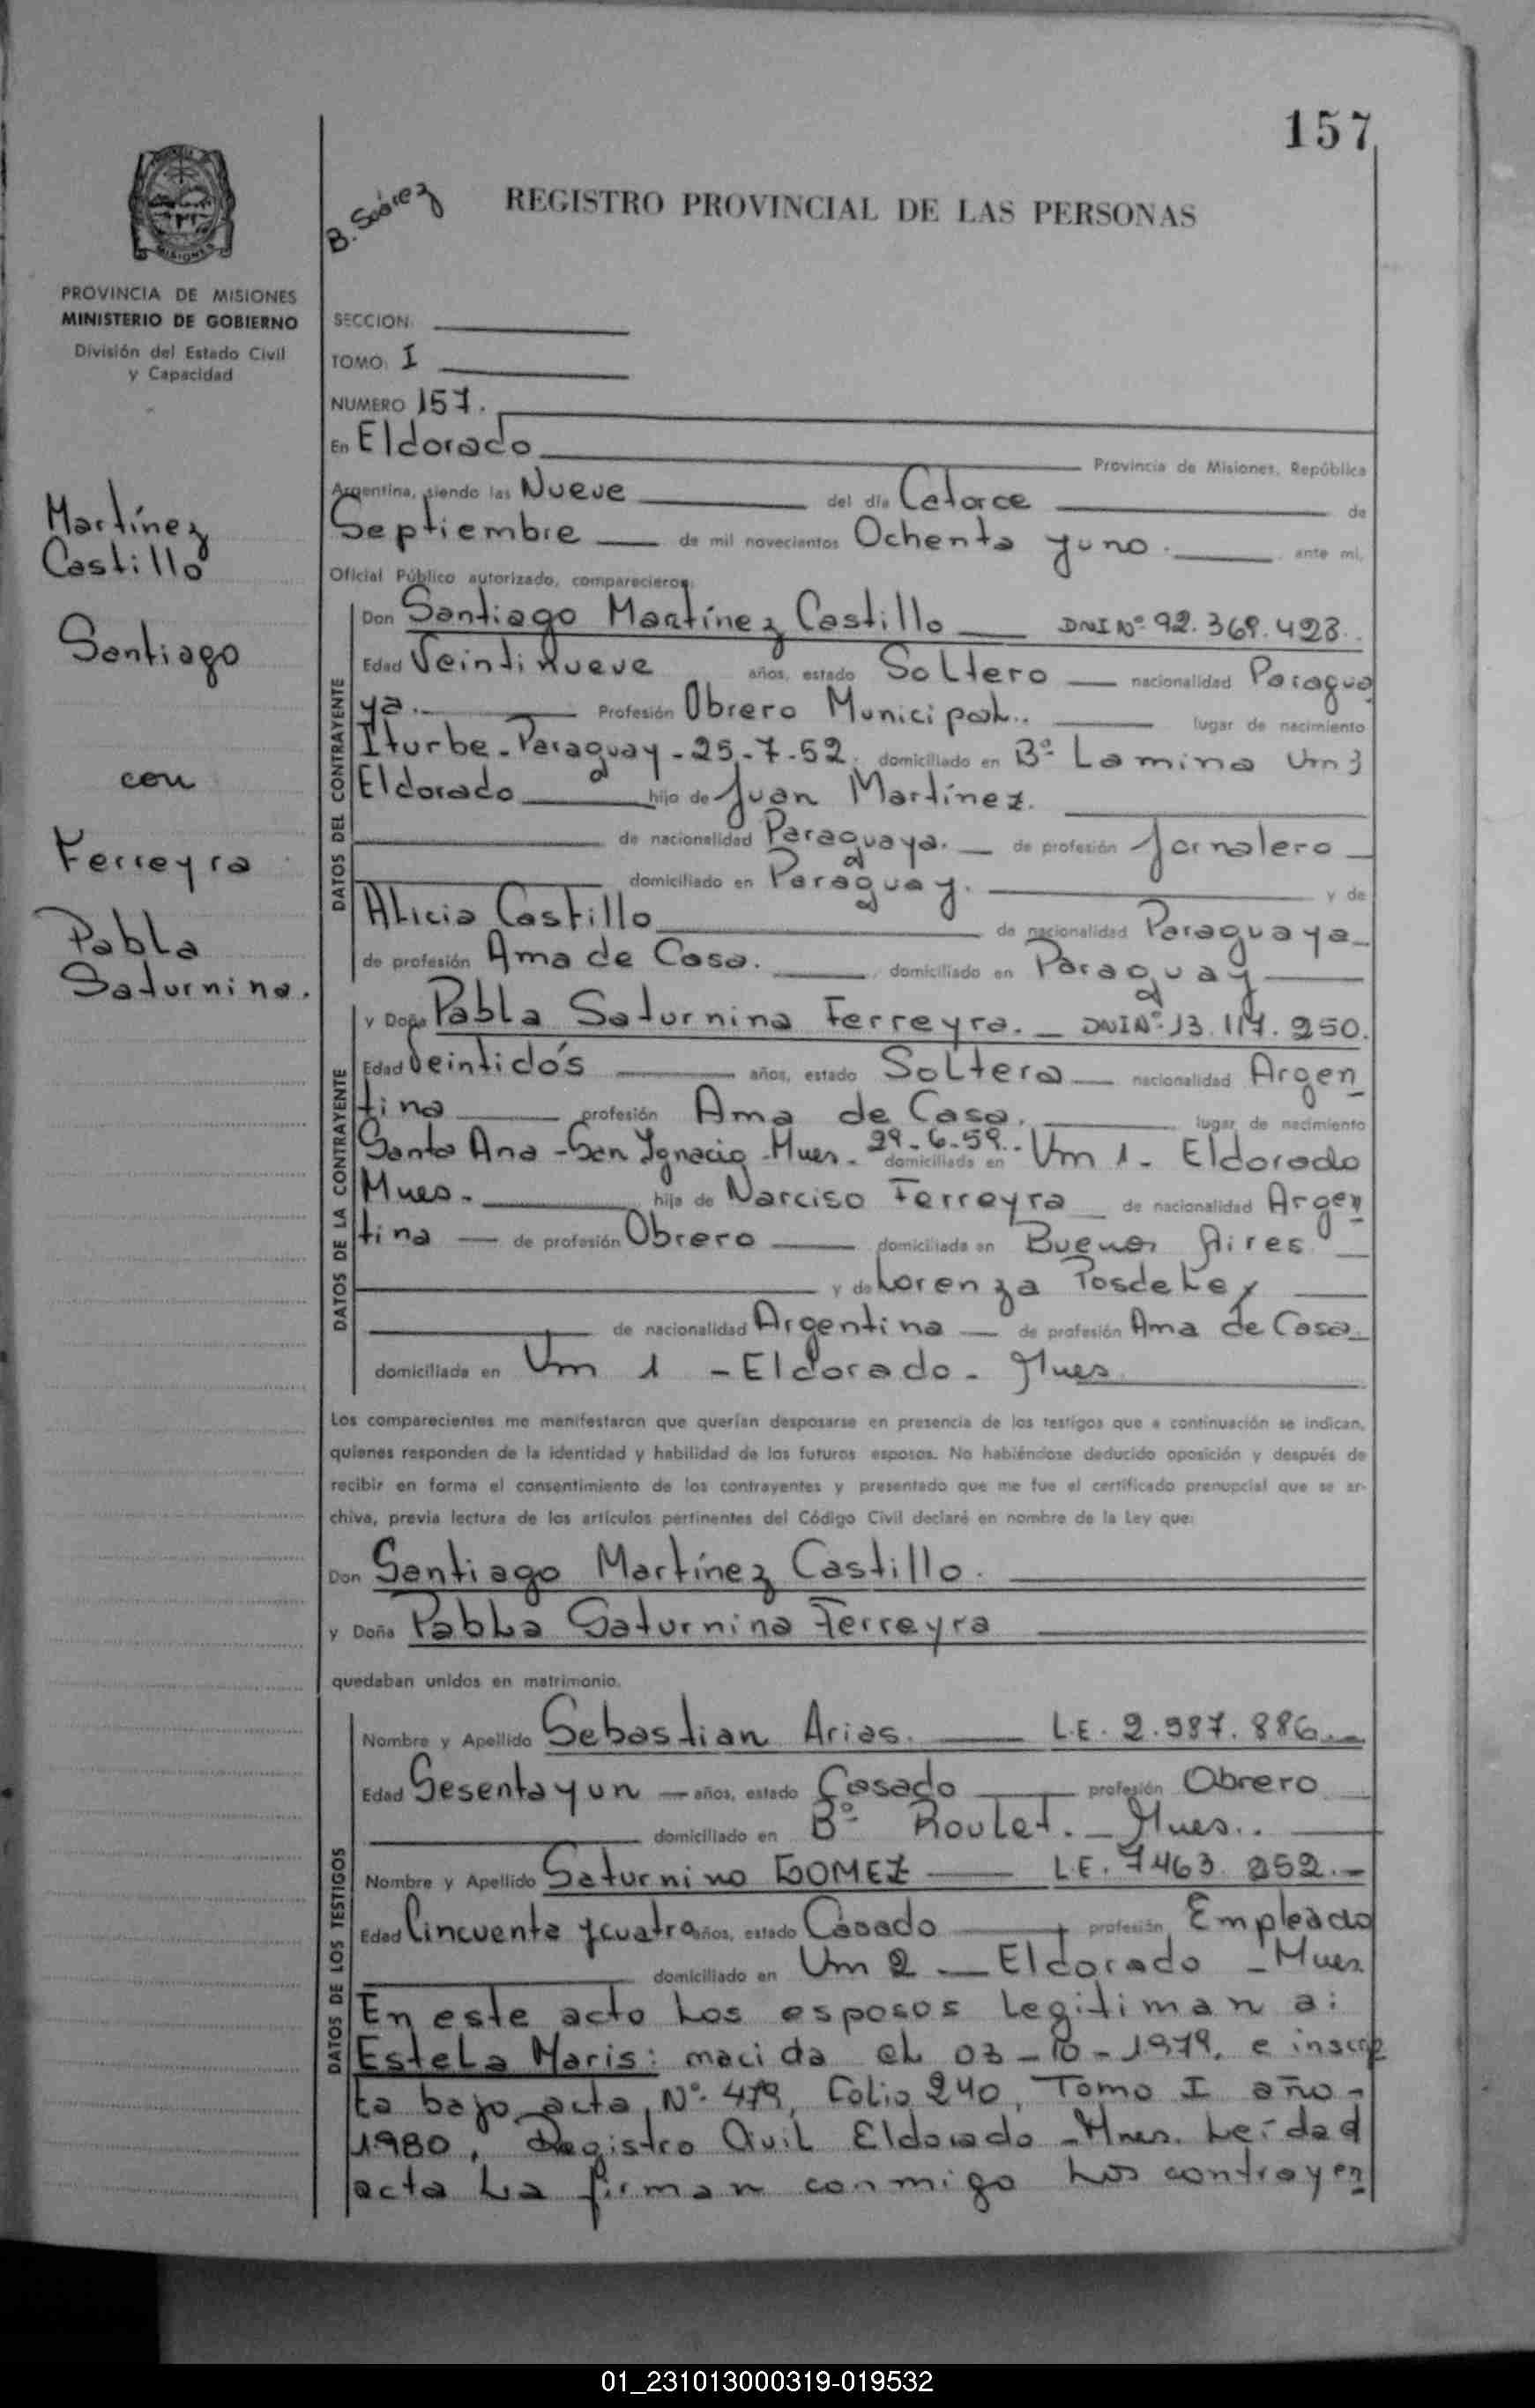 157
B. Suárez
REGISTRO PROVINCIAL DE LAS PERSONAS
PROVINCIA DE MISIONES
MINISTERIO DE GOBIERNO
División del Estado Civil
y Capacidad
SECCION:
TOMO: I
NUMERO 157.
En Eldorado Provincia de Misiones, República
Argentina, siendo las Nueve del día Catorce de
Septiembre de mil novecientos Ochenta y uno. ante mí,
Oficial Público autorizado, comparecieron:
Martínez
Castillo
Santiago
con
Ferreyra
Pabla
Saturnina.
DATOS DEL CONTRAYENTE
Don Santiago Martínez Castillo DNI Nº 92.369.423.
Edad Veintinueve años, estado Soltero nacionalidad Paragua
ya. Profesión Obrero Municipal. lugar de nacimiento
Iturbe - Paraguay - 25-7-52. domiciliado en Bº Lamina Km 3
Eldorado hijo de Juan Martínez.
de nacionalidad Paraguaya. de profesión Jornalero
domiciliado en Paraguay. y de
Alicia Castillo de nacionalidad Paraguaya
de profesión Ama de Casa. domiciliado en Paraguay
DATOS DE LA CONTRAYENTE
y Doña Pabla Saturnina Ferreyra. DNI Nº 13.117.250.
Edad Veintidós años, estado Soltera nacionalidad Argen
tina profesión Ama de Casa. lugar de nacimiento
Santa Ana - San Ignacio - Mnes. 29-6-59. domiciliada en Km 1 - Eldorado
Mnes. hija de Narciso Ferreyra de nacionalidad Argen
tina de profesión Obrero domiciliada en Buenos Aires
y de Lorenza
de nacionalidad Argentina de profesión Ama de Casa
domiciliada en Km 1 - Eldorado - Mnes
Los comparecientes me manifestaron que querían desposarse en presencia de los testigos que a continuación se indican,
quienes responden de la identidad y habilidad de los futuros esposos. No habiéndose deducido oposición y después de
recibir en forma el consentimiento de los contrayentes y presentado que me fue el certificado prenupcial que se ar-
chiva, previa lectura de los artículos pertinentes del Código Civil declaré en nombre de la Ley que:
Don Santiago Martínez Castillo.
y Doña Pabla Saturnina Ferreyra
quedaban unidos en matrimonio.
DATOS DE LOS TESTIGOS
Nombre y Apellido Sebastian Arias. L.E. 2.987.886.
Edad Sesenta y un años, estado Casado profesión Obrero
domiciliado en Bº Roulet. - Mnes.
Nombre y Apellido Saturnino GOMEZ L.E. 7463.252.
Edad Cincuenta y cuatro años, estado Casado profesión Empleado
domiciliado en Km 2 - Eldorado - Mnes
En este acto los esposos legitiman a:
Estela Maris: nacida el 03-10-1979, e inscrip
ta bajo acta, Nº 479, Folio 240, Tomo I año -
1980, Registro Civil Eldorado - Mnes. Leída el
acta la firman conmigo los contrayen
01_231013000319-019532